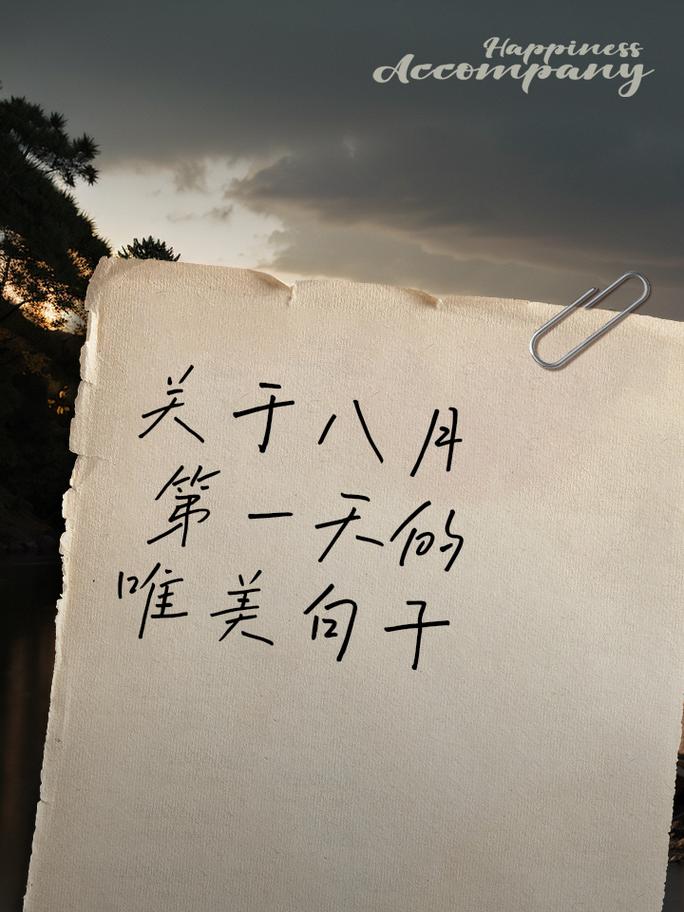 Happiness
Accompany
关于八月
第一天的
唯美句子